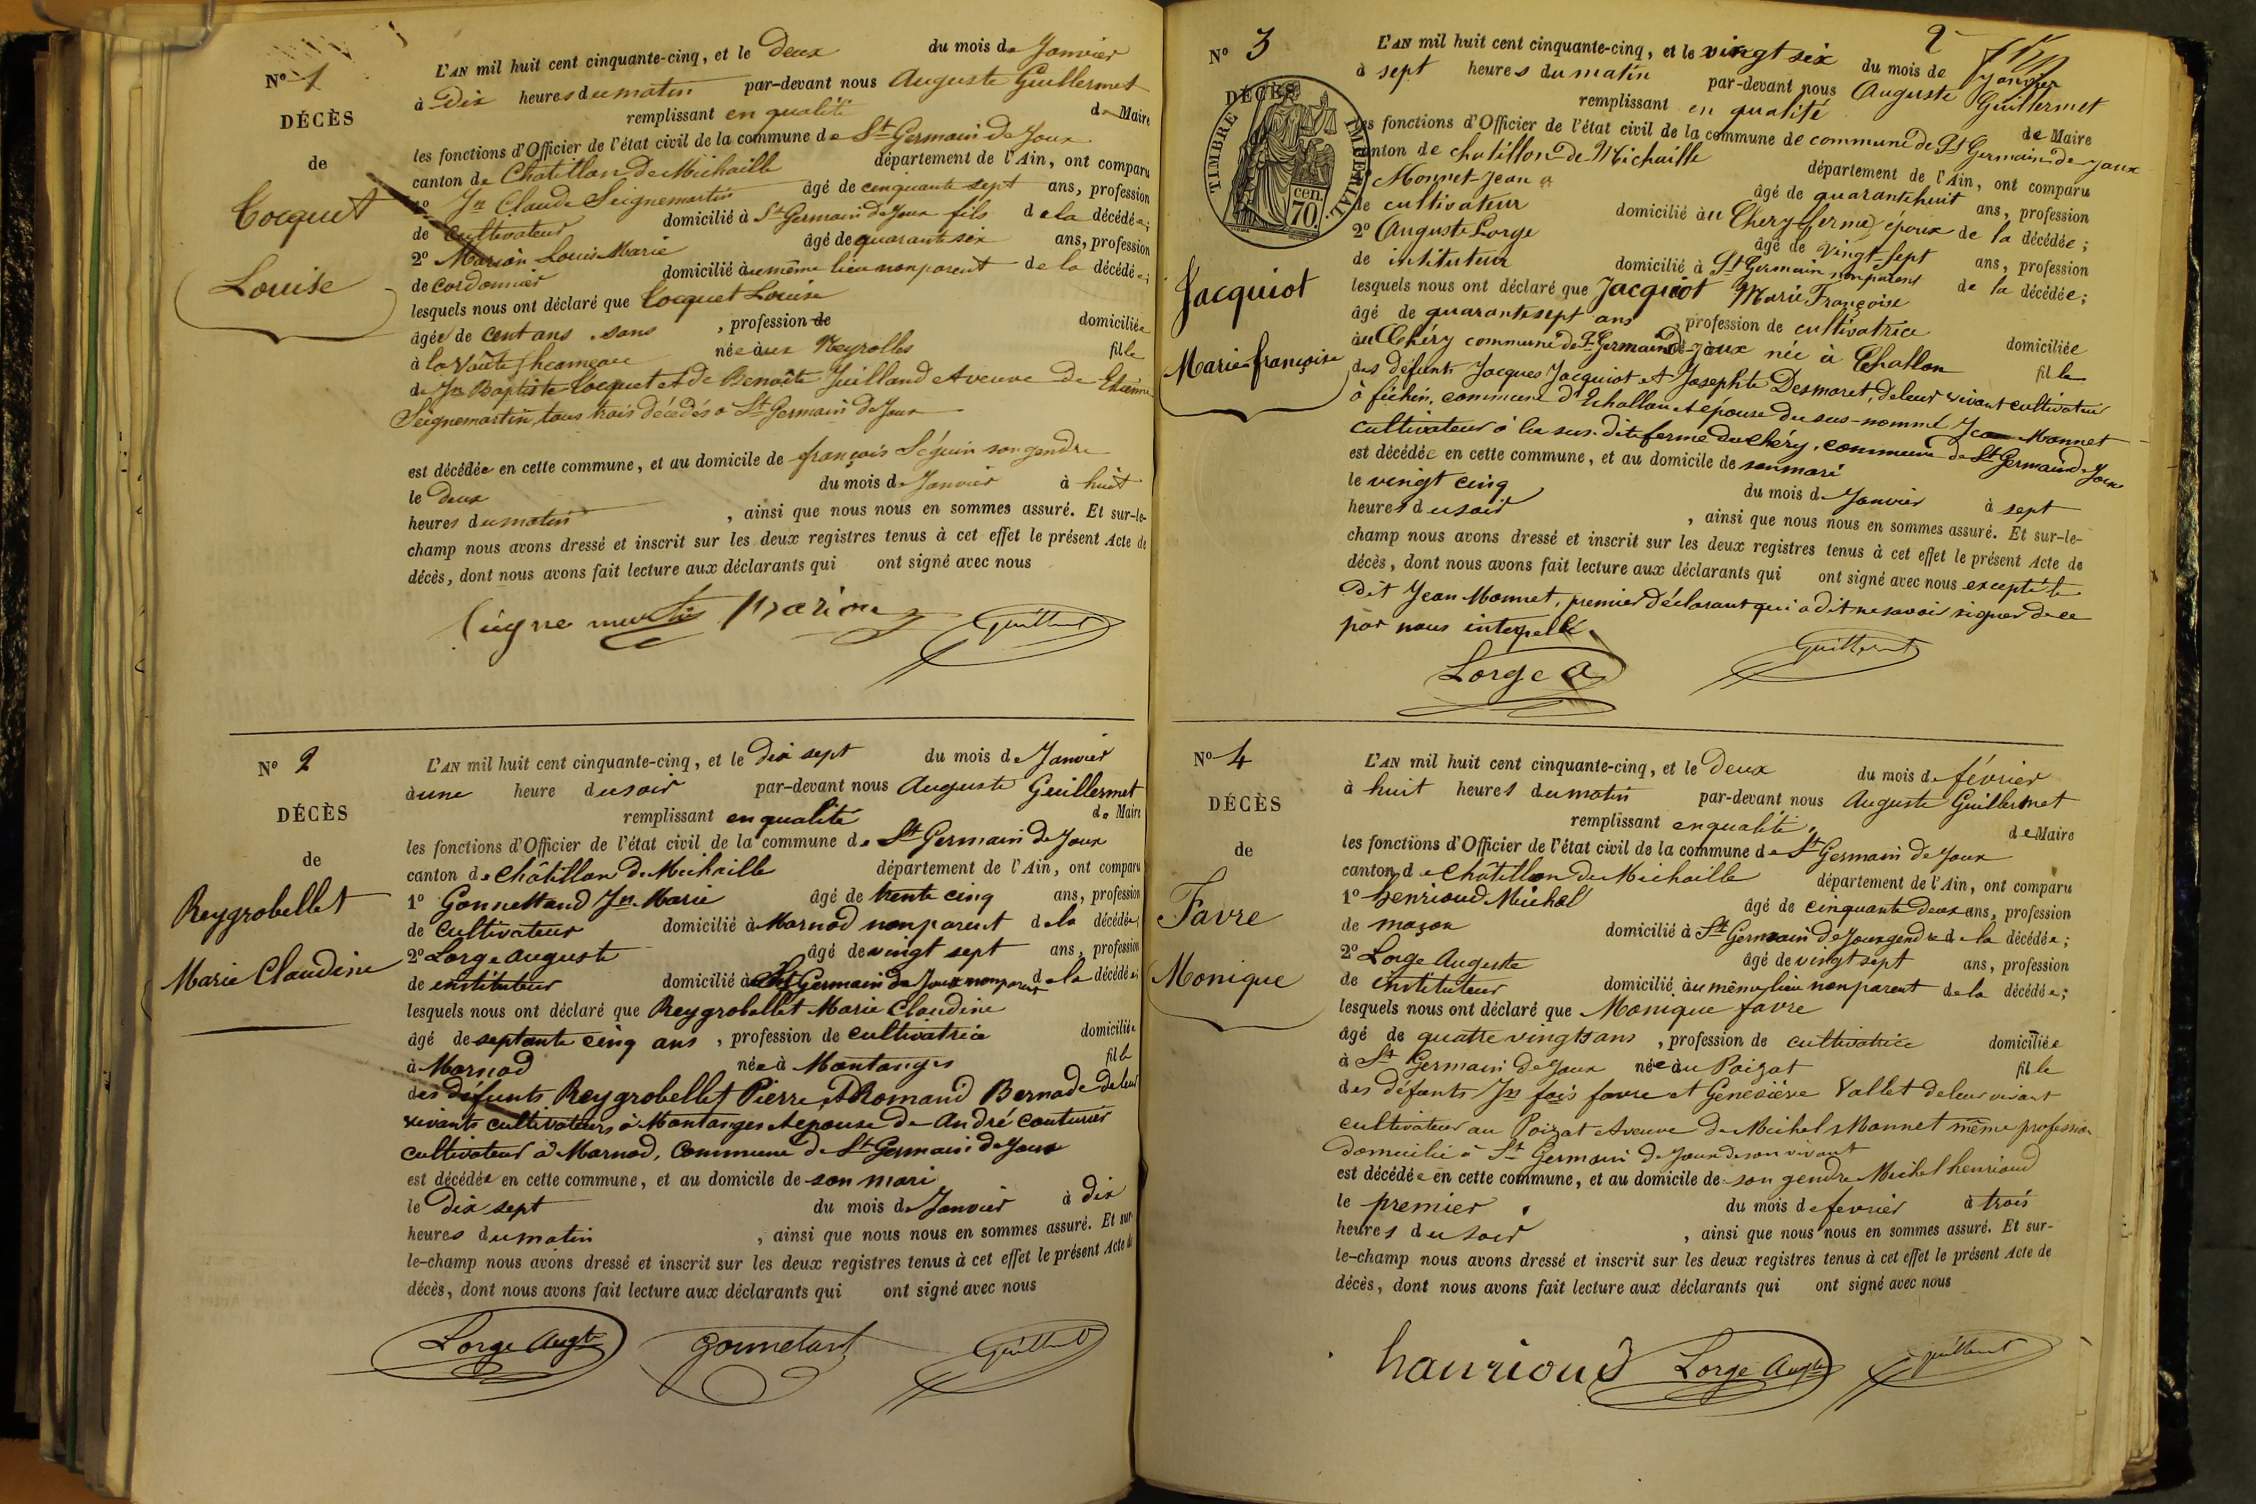 Nº 1
DÉCÈS
de
Cocquet
Louise
L'AN mil huit cent cinquante-cinq, et le deux du mois de Janvier
à Dix heures du matin par-devant nous Auguste Guillermet
remplissant en qualité de Maire
les fonctions d'Officier de l'état civil de la commune de St Germain de Joux
canton de Chatillon de Michaille département de l'Ain, ont comparu
1º Jn Claude Seignemartin âgé de cinquante sept ans, profession
de cultivateur domicilié à St Germain de Joux fils de la décédée;
2º Marion Louis Marie âgé de quarante six ans, profession
de cordonnier domicilié au même lieu non parent de la décédée;
lesquels nous ont déclaré que Cocquet Louise
âgée de cent ans, sans, profession de domiciliée
à la Voûte hameau née à aux Neyrolles fille
de Jn Baptiste Cocquet et de Benoîte Juilland et veuve de Etienne
Seignemartin, tous trois décédés à St Germain de Joux
est décédée en cette commune, et au domicile de françois Séguin son gendre
le deux du mois de Janvier à huit
heures du matin, ainsi que nous nous en sommes assuré. Et sur-le-
champ nous avons dressé et inscrit sur les deux registres tenus à cet effet le présent Acte de
décès, dont nous avons fait lecture aux déclarants qui ont signé avec nous
Seigne martin Marion Guillermet
Nº 2
DÉCÈS
de
Reygrobellet
Marie Claudine
L'AN mil huit cent cinquante-cinq, et le Dix sept du mois de Janvier
à une heure du soir par-devant nous Auguste Guillermet
remplissant en qualité de Maire
les fonctions d'Officier de l'état civil de la commune de St Germain de Joux
canton de Châtillon de Michaille département de l'Ain, ont comparu
1º Gonnettand Jn Marie âgé de trente cinq ans, profession
de cultivateur domicilié à Marnod non parent de la décédée;
2º Lorge auguste âgé de vingt sept ans, profession
de instituteur domicilié à St Germain de Joux non parent de la décédée;
lesquels nous ont déclaré que Reygrobellet Marie Claudine
âgé de septante cinq ans, profession de cultivatrice domiciliée
à Marnod née à Montanges fille
des défunts Reygrobellet Pierre et Romand Bernade de leur
vivants cultivateurs à Montanges et épouse de André Couturier
cultivateur à Marnod, Commune de St Germain de Joux
est décédée en cette commune, et au domicile de son mari
le Dix sept du mois de Janvier à dix
heures du matin, ainsi que nous nous en sommes assuré. Et sur
le-champ nous avons dressé et inscrit sur les deux registres tenus à cet effet le présent Acte de
décès, dont nous avons fait lecture aux déclarants qui ont signé avec nous
Lorge Augte gonnetant Guillermet
2
Nº 3
DÉCÈS
TIMBRE IMPÉRIAL.
cen.
70.
Jacquiot
Marie françoise
L'AN mil huit cent cinquante-cinq, et le vingt six du mois de Janvier
à sept heures du matin par-devant nous Auguste Guillermet
remplissant en qualité de Maire
les fonctions d'Officier de l'état civil de la commune de commune de St Germain de Joux
canton de chatillon de Michaille département de l'Ain, ont comparu
Monnet Jean âgé de quarante huit ans, profession
de cultivateur domicilié au Chery ferme, époux de la décédée;
2º Auguste Lorge âgé de vingt-sept ans, profession
de instituteur domicilié à St Germain non parent de la décédée;
lesquels nous ont déclaré que Jacquiot Marie Françoise
âgé de quarante sept ans, profession de cultivatrice
au Chéry commune de St Germain de Joux née à Echallon domiciliée
fille
des défunts Jacques Jacquiot et Josephte Desmaret, de leur vivant cultivateur
à commune d'Echallon et épouse du sus-nommé Jean Monnet
cultivateur à la sus-dite ferme du Chéry, commune de St Germain de Joux
est décédée en cette commune, et au domicile de son mari
le vingt cinq du mois de Janvier à sept
heures du soir, ainsi que nous nous en sommes assuré. Et sur-le-
champ nous avons dressé et inscrit sur les deux registres tenus à cet effet le présent Acte de
décès, dont nous avons fait lecture aux déclarants qui ont signé avec nous excepté le
Dit Jean Monnet, premier déclarant qui a dit ne savoir signer de ce
par nous interpellé.
Lorge A Guillermet
Nº 4
DÉCÈS
de
Favre
Monique
L'AN mil huit cent cinquante-cinq, et le deux du mois de février
à huit heures du matin par-devant nous Auguste Guillermet
remplissant en qualité de Maire
les fonctions d'Officier de l'état civil de la commune de St Germain de Joux
canton de Châtillon de Michaille département de l'Ain, ont comparu
1º henrioud Michel âgé de cinquante deux ans, profession
de maçon domicilié à St Germain de Joux gendre de la décédée;
2º Lorge Auguste âgé de vingt sept ans, profession
de instituteur domicilié au même lieu non parent de la décédée;
lesquels nous ont déclaré que Monique favre
âgé de quatre vingts ans, profession de cultivatrice domiciliée
à St Germain de Joux née au Poizat fille
des défunts Jn fois favre et Geneviève Vallet de leur vivant
cultivateur au Poizat et veuve de Michel Monnet même profession
domicilié à St Germain de Joux de son vivant
est décédée en cette commune, et au domicile de son gendre Michel henrioud
le premier du mois de fevrier à trois
heures du soir, ainsi que nous nous en sommes assuré. Et sur-
le-champ nous avons dressé et inscrit sur les deux registres tenus à cet effet le présent Acte de
décès, dont nous avons fait lecture aux déclarants qui ont signé avec nous
hanrioud Lorge Augte guillermet